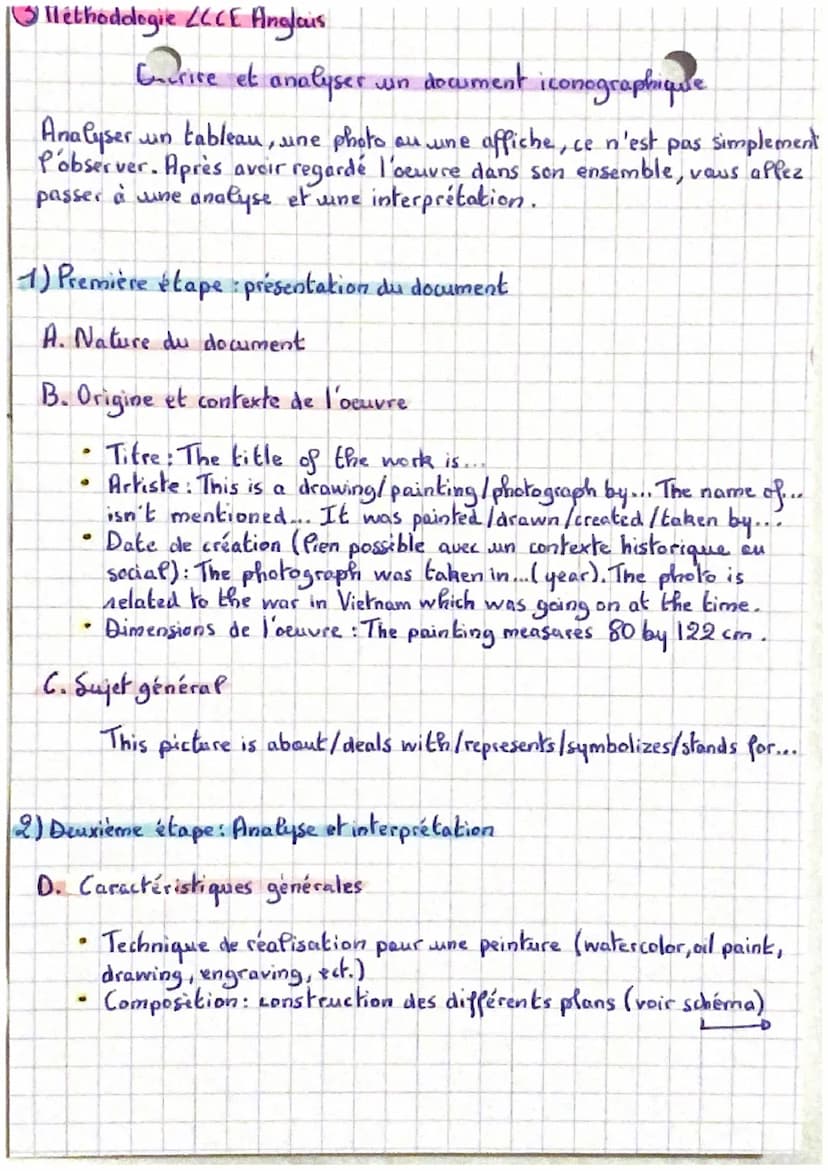 ③ Méthodologie LLCE Anglais
et analyser un document iconographique
Analyser un tableau, une photo ou une affiche, ce n'est pas simplement
l'observer. Après avoir regardé l'oeuvre dans son ensemble, vous allez
passer à une analyse et une interprétation.
1) Première étape : présentation du document
A. Nature du document
B. Origine et contexte de l'oeuvre
• Titre : The title of the work is...
• Artiste : This is a drawing/painting/photograph by... The name of...
isn't mentioned... It was painted/drawn/created/taken by...
• Date de création (lien possible avec un contexte historique ou
social) : The photograph was taken in...(year). The photo is
related to the war in Vietnam which was going on at the time.
• Dimensions de l'oeuvre : The painting measures 80 by 122 cm.
C. Sujet général
This picture is about/deals with/represents/symbolizes/stands for...
2) Deuxième étape : Analyse et interprétation
D. Caractéristiques générales
• Technique de réalisation pour une peinture (watercolor, oil paint,
drawing, engraving, ect.)
• Composition : construction des différents plans (voir schéma)